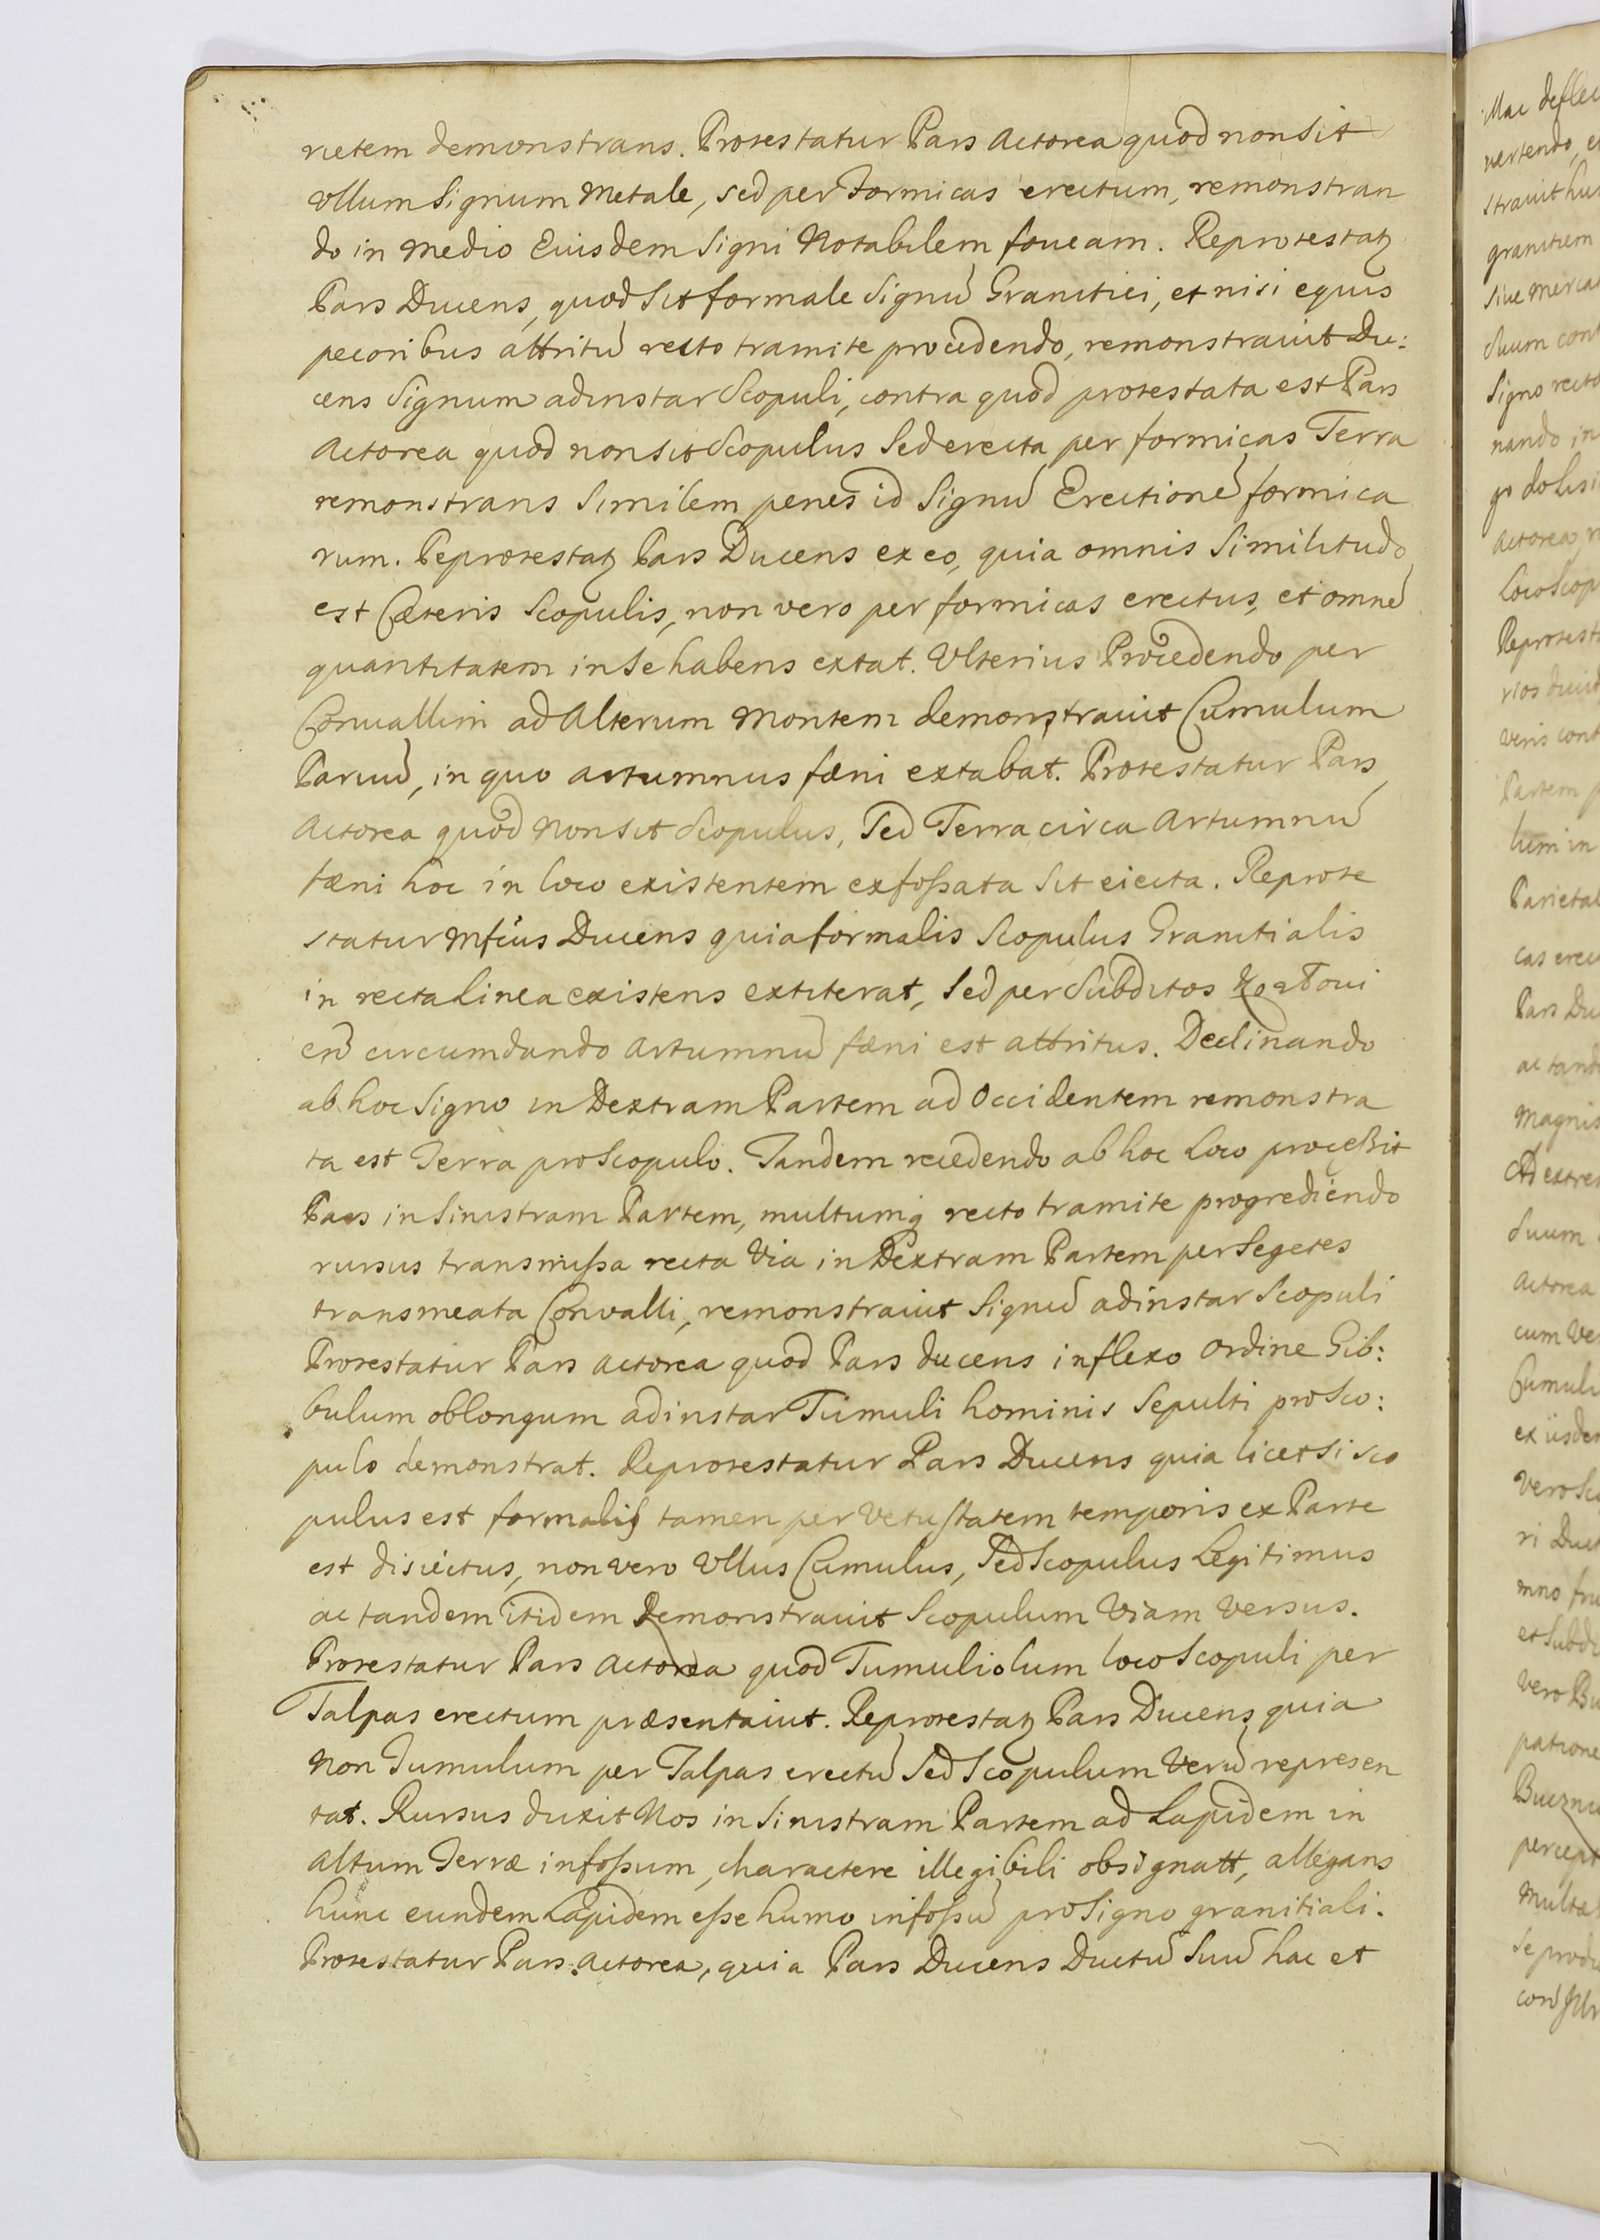 rietem demonstrans. Protestatur Pars Actorea quod non sit
Ullum Signum Metale, sed per Formicas erectum, remonstran
do in medio Eiusdem Signi Notabilem foueam. Reprotestatꝫ
Pars Ducens, quod sit formale Signū Granitiei, et nisi equis
pecoribus attritū recto tramite procedendo, remonstravit Du:
cens Signum adinstar Scopuli, contra quod protestata est Pars
Actorea quod non sit Scopulus Sed erecta per formicas Terra
remonstrans Similem penes id Signū Erectionē formica
rum. Reprotestatꝫ Pars Ducens ex eo, quia omnis Similitudo
est Cæteris Scopulis, non vero per formicas erectus, et omnē
quantitatem in se habens extat. Ulterius Procedendo per
Convallim ad Alterum Montem demonstravit Cumulum
Parvū, in quo artumnus fæni extabat. Protestatur Pars
Actorea quod non sit Scopulus, Sed Terra circa Artumnū
fæni hoc in loco existentem exfoßata sit eiecta. Reprote
statur Mfcus Ducens quia formalis Scopulus Granitialis
in recta Linea existens extiterat, Sed per Subditos
circumdando Artumnū fæni est attritus. Declinando
ab hoc Signo in Dextram Partem ad Occidentem remonstra
ta est Terra pro Scopulo. Tandem recedendo ab hoc Loco proceßit
Pars in Sinistram Partem, multumq̨ recto tramite progrediendo
rursus transmißa recta Via in Dextram Partem per Segetes
transmeata Convalli, remonstravit Signū adinstar Scopuli
Protestatur Pars Actorea quod Pars ducens inflexo Ordine Gib:
bulum oblongum adinstar Tumuli hominis Sepulti pro Sco:
pulo demonstrat. Reprotestatur Pars Ducens quia licet si Sco
pulus est formalis tamen per Vetustatem temporis ex Parte
est disiectus, non vero Ullus Cumulus, Sed Scopulus Legitimus
ac tandem itidem Demonstravit Scopulum Viam Versus.
Protestatur Pars Actorea quod Tumuliolum loco Scopuli per
Talpas erectum præsentavit. Reprotestatꝫ Pars Ducens quia
Non Tumulum per Talpas erectū Sed Scopulum Verū represen
tat. Rursus duxit Nos in Sinistram Partem ad Lapidem in
Altum Terræ infoßum, charactere illegibili obsignatt, allegans
hunc eundem Lapidem eße humo infoßū pro Signo granitiali.
Protestatur Pars Actorea, quia Pars Ducens Ductū Suū hac et